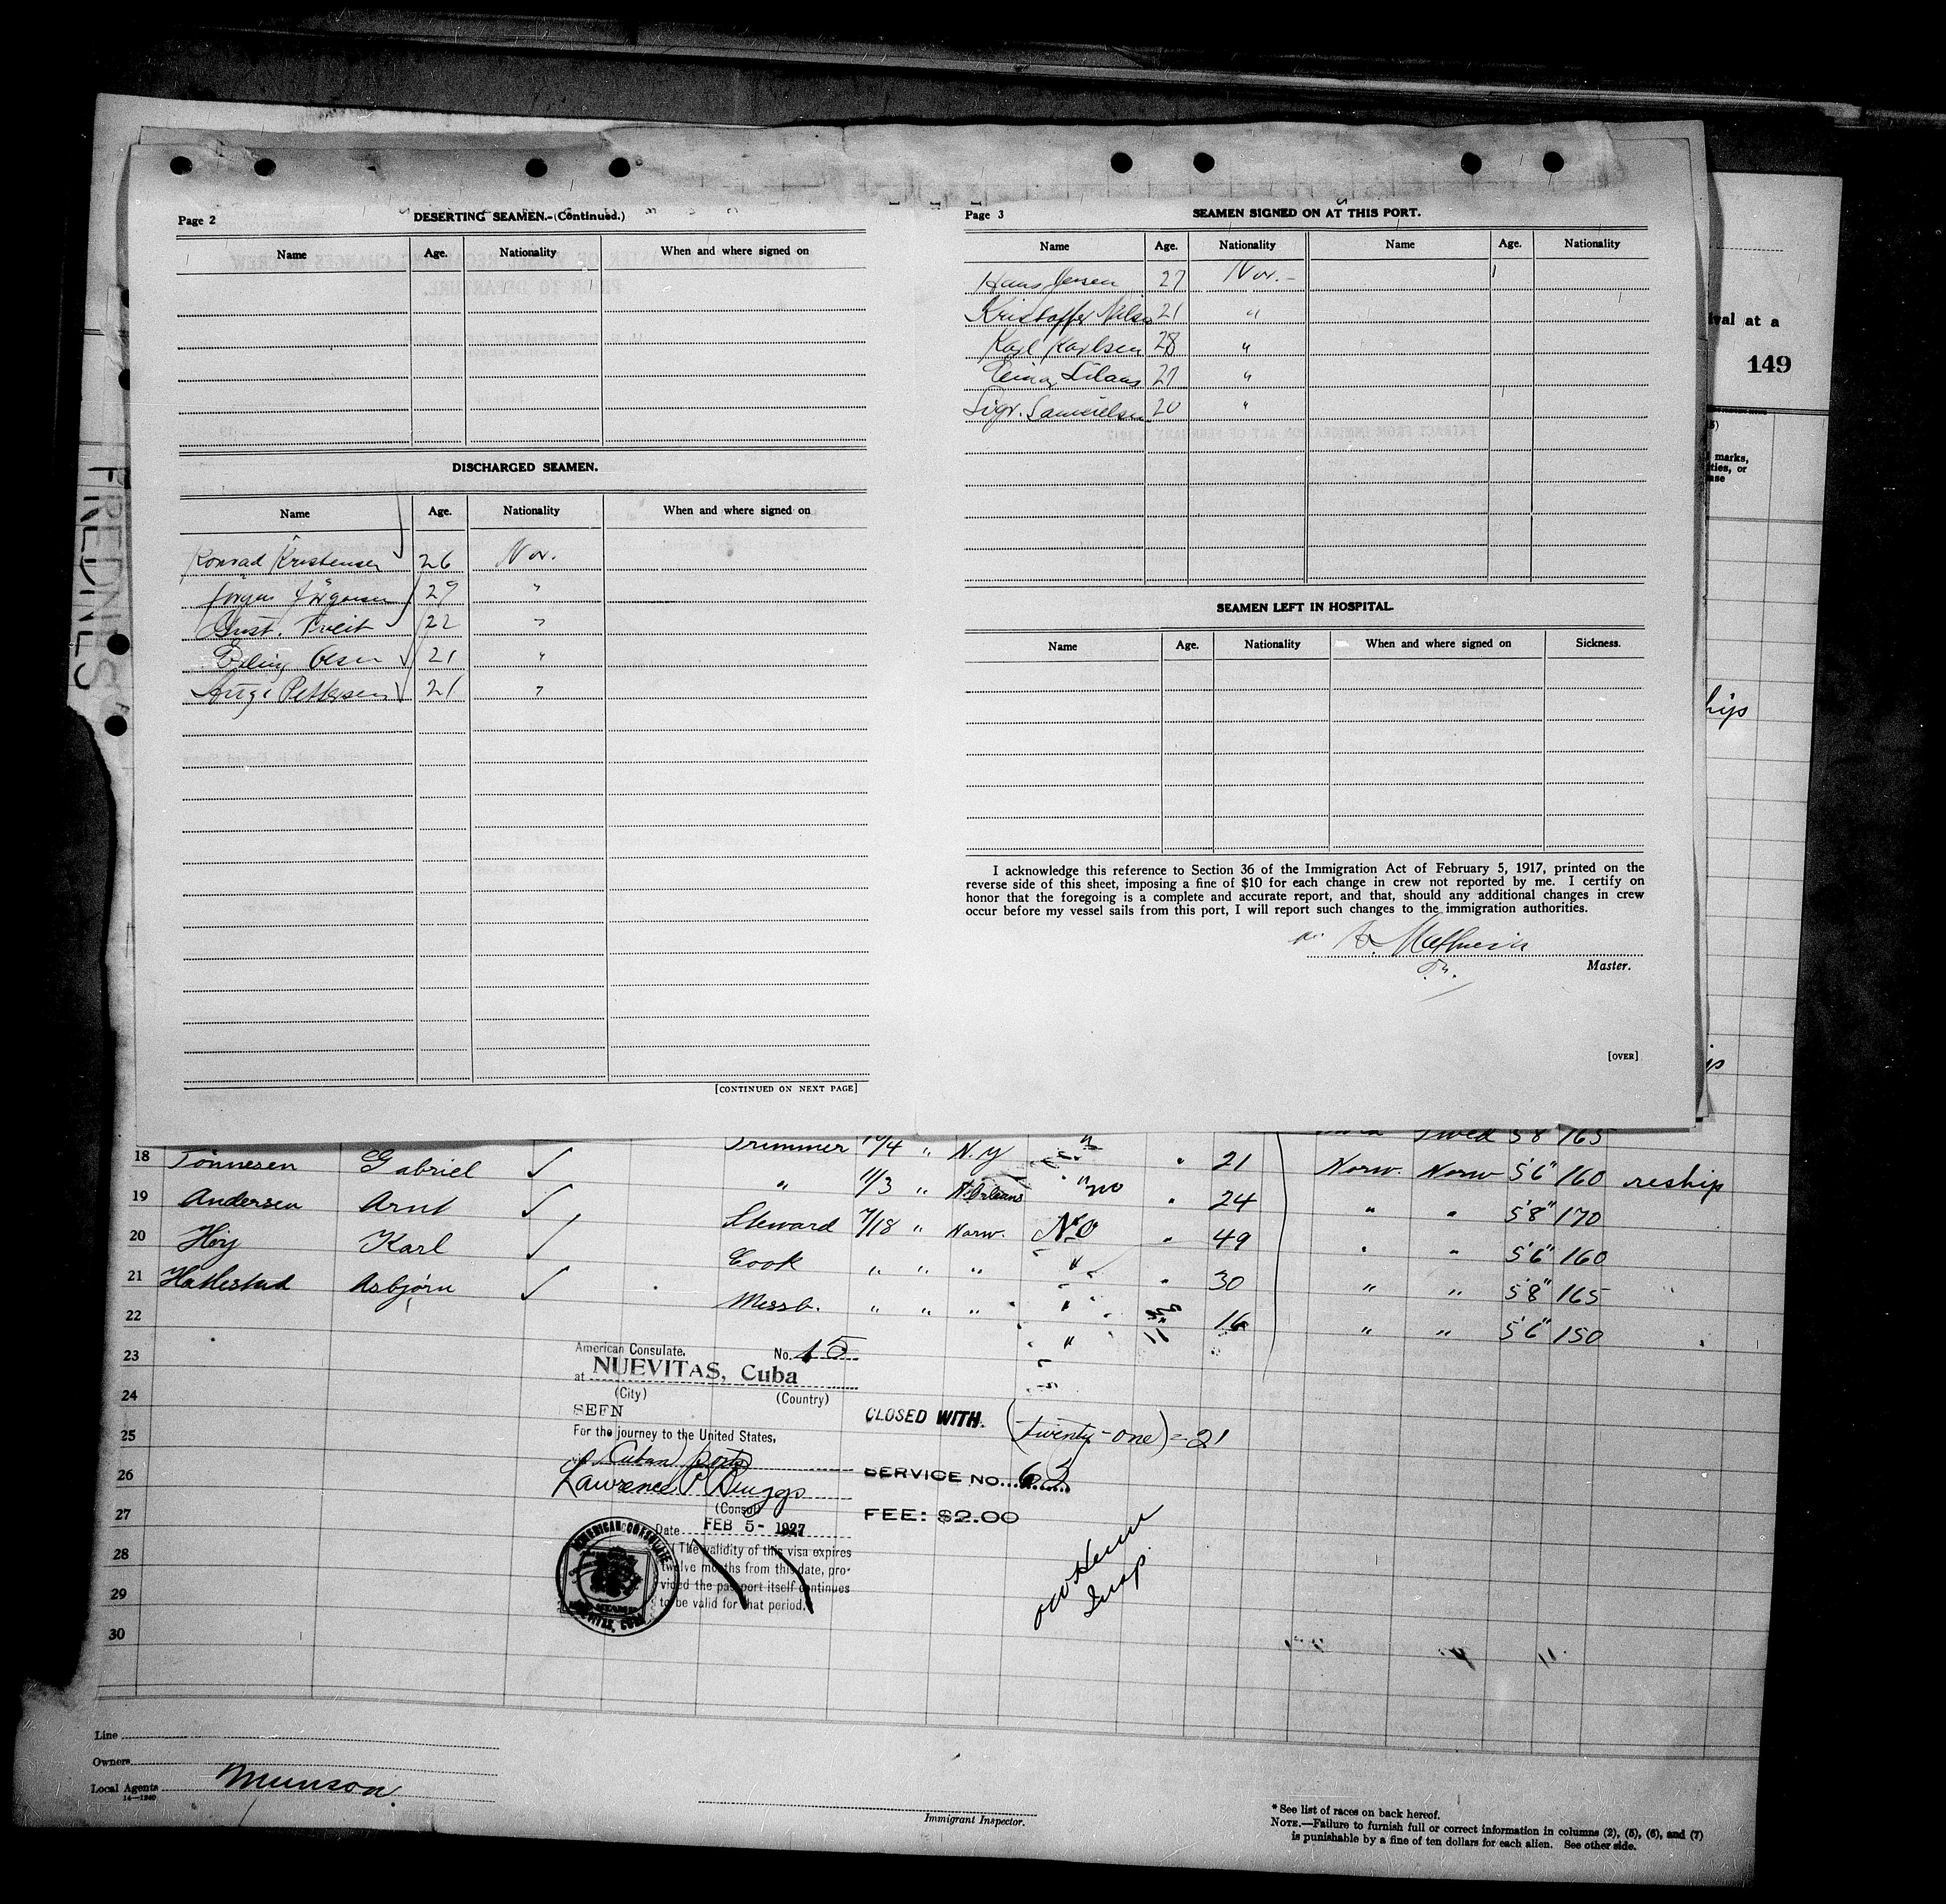 Page 2
DESERTING SEAMEN.-(Continued.)
Name Age. Nationality When and where signed on
DISCHARGED SEAMEN.
Name Age. Nationality When and where signed on
Konrad Kristensen 26 Nor.
29 "
Gust. 22 "
Olsen 21 "
Pettersen 21 "
[CONTINUED ON NEXT PAGE]
Page 3
SEAMEN SIGNED ON AT THIS PORT.
Name Age. Nationality Name Age. Nationality
Hans Jensen 27 Nor. -
Kristoffer Nilsen 21 "
Karl Karlsen 28 "
Einar 27 "
Sigv. Samuelsen 20 "
SEAMEN LEFT IN HOSPITAL.
Name Age. Nationality When and where signed on Sickness.
I acknowledge this reference to Section 36 of the Immigration Act of February 5, 1917, printed on the
reverse side of this sheet, imposing a fine of $10 for each change in crew not reported by me. I certify on
honor that the foregoing is a complete and accurate report, and that, should any additional changes in crew
occur before my vessel sails from this port, I will report such changes to the immigration authorities.
Master.
[OVER]
val at a
149
marks,
ties, or
hip
FREDNES
Trimmer 10/4 " N.Y " 21 Swed 5 8 165
18 Tönnesen Gabriel ✓ " 11/3 " N.Orleans " no " 24 Norw. Norw 5'6" 160 reship
19 Andersen Arnt ✓ Steward 7/18 " Norw. No " 49 " " 5'8" 170
20 Höy Karl ✓ Cook " " " " " 30 " " 5'6" 160
21 Hatlestad Asbjørn ✓ Messb. " " " " 16 " " 5'8" 165
22 " " " 5'6" 150
23
24
25
26
27
28
29
30
American Consulate, No. 15
at NUEVITAS, Cuba
(City) (Country)
SEEN
For the journey to the United States,
Cuban ports
Lawrence P Briggs
(Consul)
Date FEB 5- 1927
(The validity of this visa expires
twelve months from this date, pro-
vided the passport itself continues
to be valid for that period.)
AMERICAN CONSULATE
NUEVITAS, CUBA
CLOSED WITH. (twenty-one) = 21
SERVICE NO. 62
FEE: $2.00
Insp.
Line
Owners
Local Agents Munson.
14—1240
Immigrant Inspector.
* See list of races on back hereof.
NOTE.—Failure to furnish full or correct information in columns (2), (5), (6), and (7)
is punishable by a fine of ten dollars for each alien. See other side.